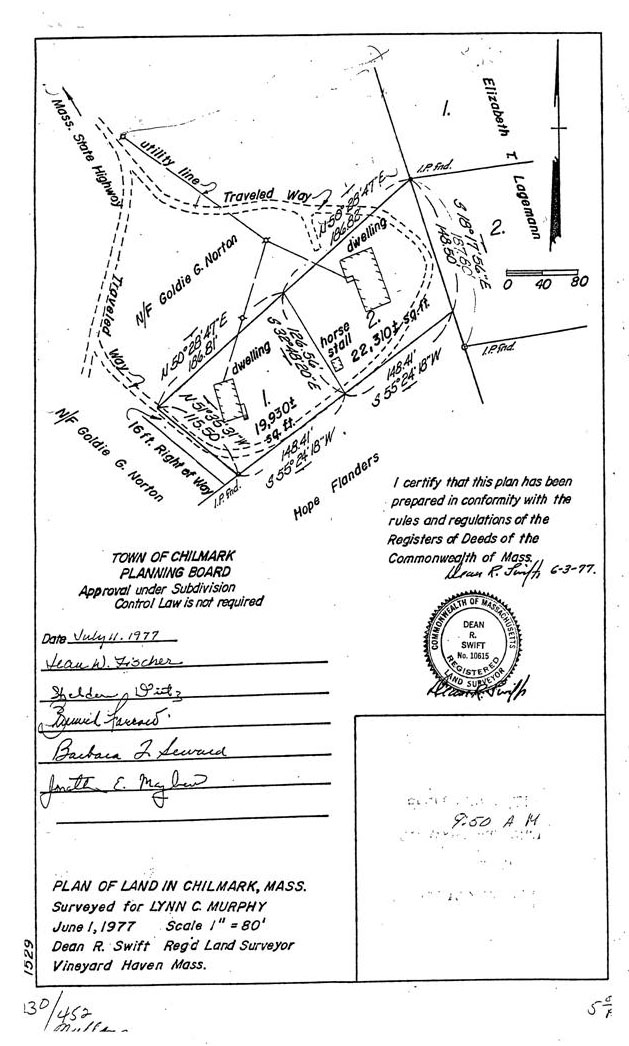 Mass. State Highway
utility line
Traveled Way
1.
Elizabeth T. Lagemann
I.P. fnd.
2.
0 40 80
S 18° 17' 56" E
157.60'
148.50'
N 58° 28' 47" E
186.83'
dwelling
N/F Goldie G. Norton
Traveled Way
N 50° 28' 47" E
186.81'
126.56'
S 32° 48' 20" E
horse stall
2.
22,310± sq. ft.
I.P. fnd.
148.41'
S 55° 24' 18" W
dwelling
1.
19,930±
sq. ft.
N 51° 35' 31" W
115.50'
16 ft. Right of Way
N/F Goldie G. Norton
I.P. fnd.
148.41'
S 55° 24' 18" W
Hope Flanders
I certify that this plan has been
prepared in conformity with the
rules and regulations of the
Registers of Deeds of the
Commonwealth of Mass.
Dean R. Swift 6-3-77.
TOWN OF CHILMARK
PLANNING BOARD
Approval under Subdivision
Control Law is not required
Date July 11. 1977
COMMONWEALTH OF MASSACHUSETTS
DEAN
R.
SWIFT
No. 10615
REGISTERED
LAND SURVEYOR
Dean R. Swift
Jean W. Fischer
Barbara J. Seward
Jonathan E. Mayhew
9:50 A M
PLAN OF LAND IN CHILMARK, MASS.
Surveyed for LYNN C. MURPHY
June 1, 1977 Scale 1" = 80'
Dean R. Swift Reg'd Land Surveyor
Vineyard Haven Mass.
1529
130/452